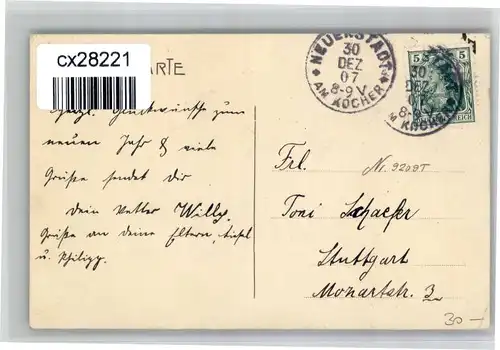 cx28221
ARTE
NEUENSTADT
30
DEZ
07
8-9 V.
AM KOCHER
5 5
REICH
30
DEZ
07
8-9 V
AM KOCHER
Herzl. Glückwünsche zum
neuen Jahr & viele
Grüsse sendet dir
dein Vetter Willy.
Grüsse an deine Eltern,
u. Philipp.
Frl. Nr. 9209T
Toni Schaefer
Stuttgart
Mozartstr. 3
30-